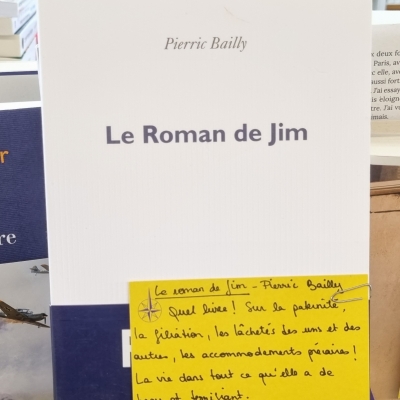 Pierric Bailly
Le Roman de Jim
Le roman de Jim - Pierric Bailly
Quel livre ! Sur la paternité,
la filiation, les lâchetés des uns et des
autres, les accommodements précaires !
La vie dans tout ce qu'elle a de
beau et terrifiant.
deux fo
Paris, av
c elle, avec
aussi fort
J'ai essay
is éloign
tre. J'ai v
mais
r
re